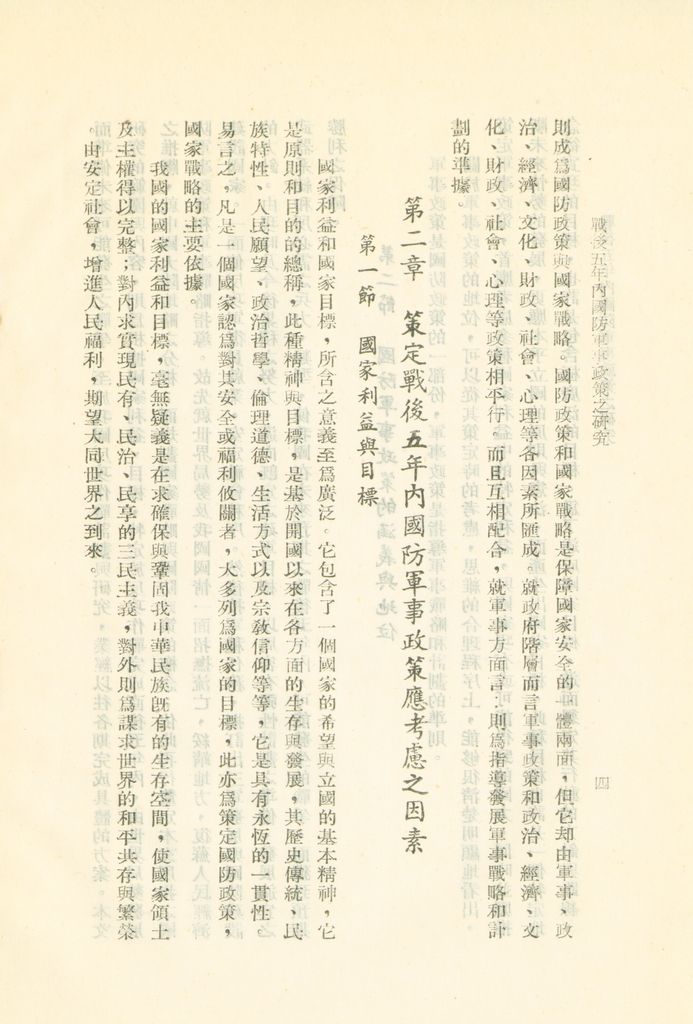 戰後五年內國防軍事政策之研究
四
則成爲國防政策與國家戰略。國防政策和國家戰略是保障國家安全的一體兩面，但它却由軍事、政
治、經濟、文化、財政、社會、心理等各因素所匯成。就政府階層而言軍事政策和政治、經濟、文
化、財政、社會、心理等政策相平行。而且互相配合，就軍事方面言：則爲指導發展軍事戰略和計
劃的準據。
第二章　策定戰後五年內國防軍事政策應考慮之因素
第一節　國家利益與目標
國家利益和國家目標，所含之意義至爲廣泛。它包含了一個國家的希望與立國的基本精神，它
是原則和目的的總稱，此種精神與目標，是基於開國以來在各方面的生存與發展，其歷史傳統、民
族特性、人民願望、政治哲學、倫理道德、生活方式以及宗教信仰等等，它是具有永恆的一貫性。
易言之，凡是一個國家認爲對其安全或福利攸關者，大多列爲國家的目標，此亦爲策定國防政策，
國家戰略的主要依據。
我國的國家利益和目標，毫無疑義是在求確保與鞏固我中華民族旣有的生存空間，使國家領土
及主權得以完整；對內求實現民有、民治、民享的三民主義，對外則爲謀求世界的和平共存與繁榮
。由安定社會，增進人民福利，期望大同世界之到來。